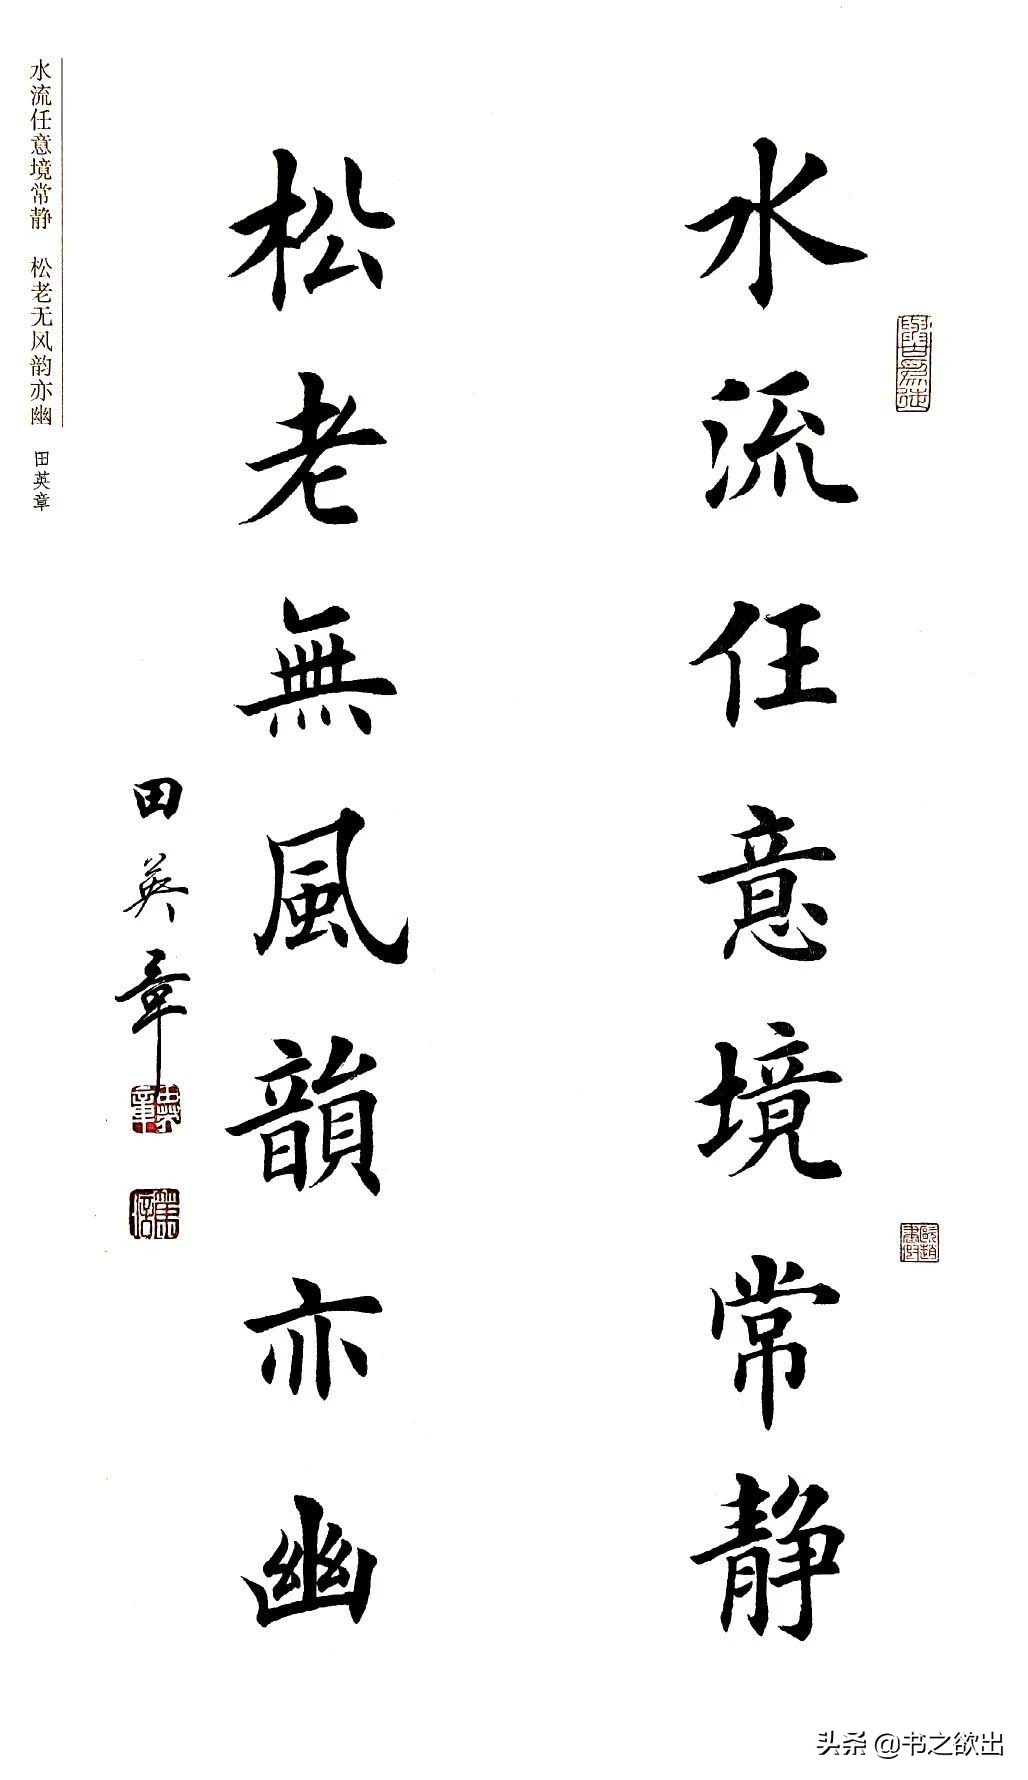 水流任意境常静
松老無風韻亦幽
田英章
水流任意境常静 松老无风韵亦幽 田英章
头条 @书之欲出